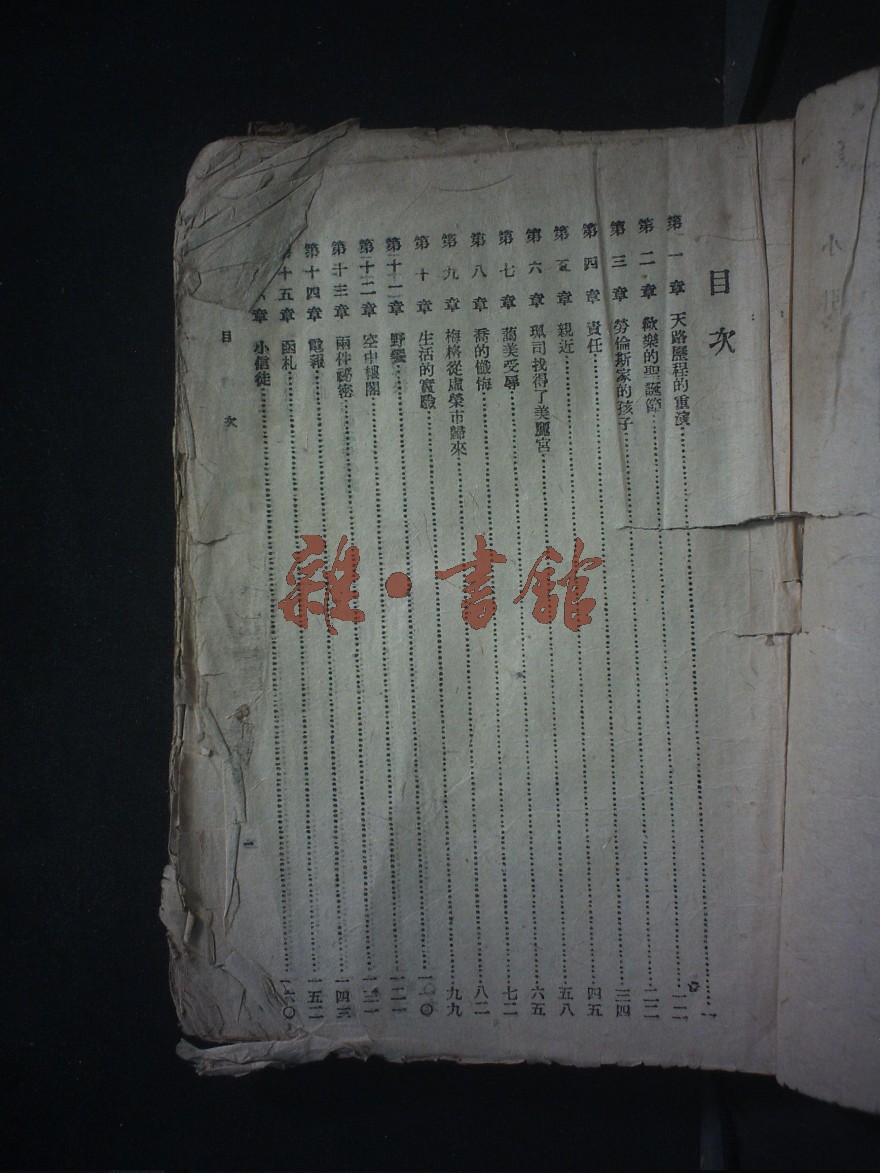 小引
目次
第一章 天路歷程的重演……一
第二章 歡樂的聖誕節……一二
第三章 勞倫斯家的孩子……二二
第四章 責任……三四
第五章 親近……四五
第六章 珮司找得了美麗宮……五八
第七章 藹美受辱……六五
第八章 喬的懺悔……七二
第九章 梅格從虛榮市歸來……八二
第十章 生活的實驗……九九
第十一章 野餐……一一〇
第十二章 空中樓閣……一二一
第十三章 兩件祕密……一三一
第十四章 電報……一四三
第十五章 函札……一五二
六章 小信徒……一六〇
目次
一
雜·書館